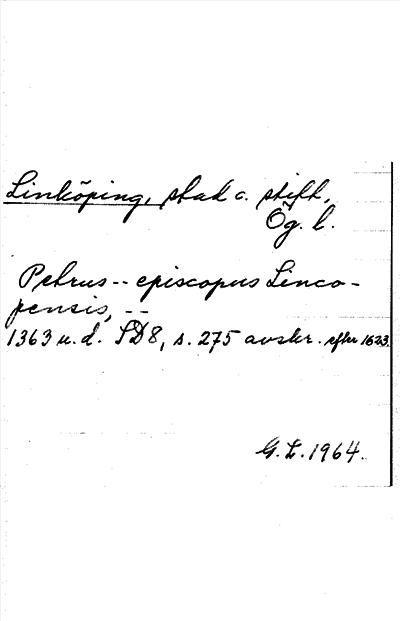 Linköping, stad o. stift,
Ög. l.
Petrus -- episcopus Linco-
pensis, --
1363 u. d. SD 8, s. 275 avskr. efter 1623.
G. L. 1964.